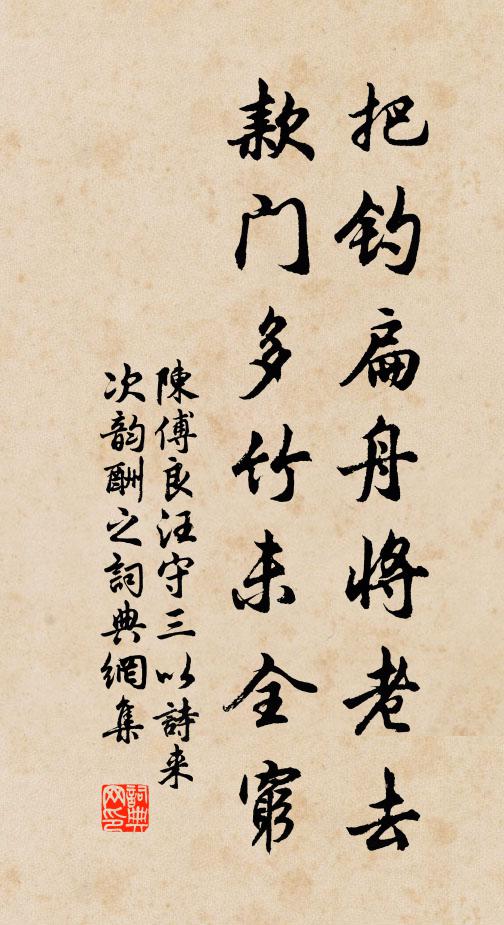 把钓扁舟將老去
款门多竹未全窮
陳傅良汪守三以詩来
次韵酬之詞典網集
詞典网印